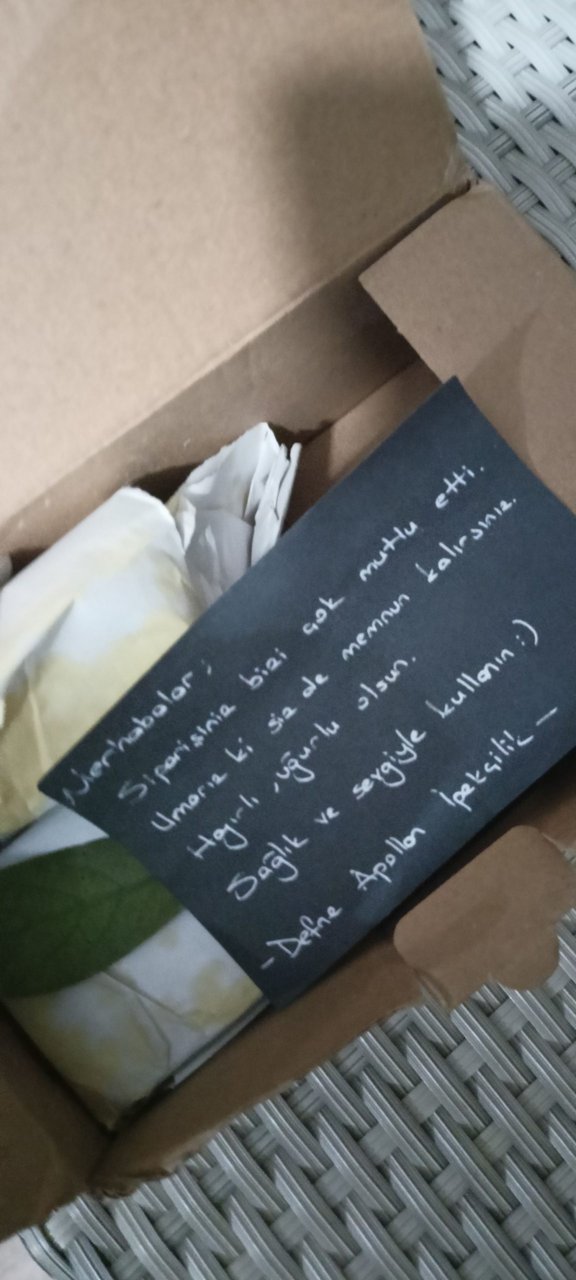 Merhabalar;
Siparişiniz bizi çok mutlu etti.
Umarız ki siz de memnun kalırsınız.
Hayırlı, uğurlu olsun.
Sağlık ve sevgiyle kullanın :)
- Defne Apollon İpekçilik -